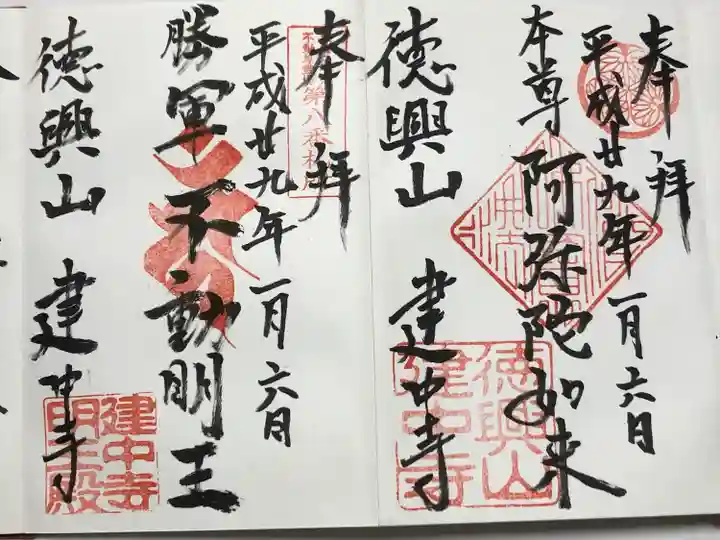 奉拝
平成廿九年一月六日
本尊 阿弥陀如来
徳興山 建中寺
徳興山
建中寺
奉拝
平成廿九年一月六日
勝軍不動明王
徳興山 建中寺
建中寺
明王殿